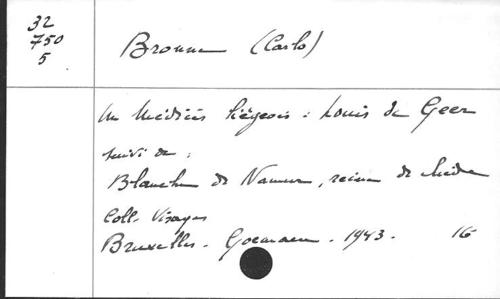 32
750
5
Bronne (Carlo)
Un Médicis liégeois : Louis de Geer
suivi de :
Blanche de Namur, reine de Suède
Coll. Visages
Bruxelles. Goemaere. 1943. 16